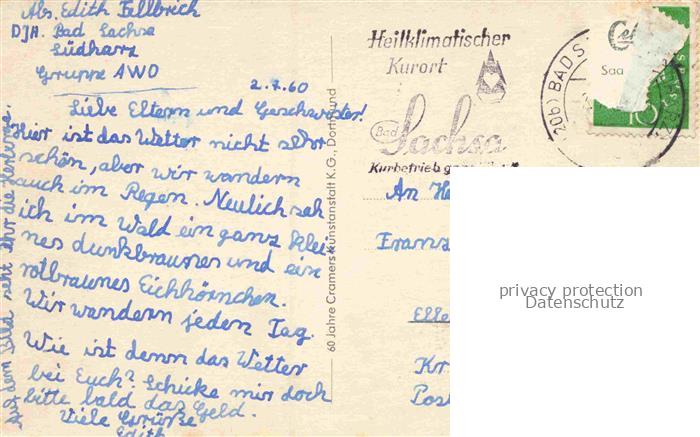 Abs. Edith Fellbrich
DJH. Bad Sachsa
Südharz
Gruppe AWO
2.7.60
Liebe Eltern und Geschwister!
Hier ist das Wetter nicht sehr
schön, aber wir wandern
auch im Regen. Neulich sah
ich im Wald ein ganz klei
nes dunkbraunes und ein
rotbraunes Eichhörnchen.
Wir wandern jeden Tag.
Wie ist denn das Wetter
bei Euch? Schicke mir doch
bitte bald das Geld.
Viele Grüße
Edith
Auf dem Bild seht ihr die
60 Jahre Cramers Kunstanstalt K.G., Dortmund
Heilklimatischer
Kurort
Bad
Sachsa
Kurbetrieb
(20b) BAD S
Saa
10
An He
Franz
Elle
Kr
Post
privacy protection
Datenschutz